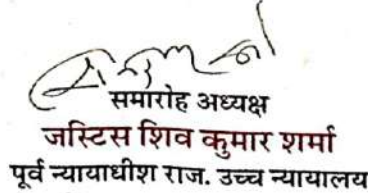 समारोह अध्यक्ष
जस्टिस शिव कुमार शर्मा
पूर्व न्यायाधीश राज. उच्च न्यायालय